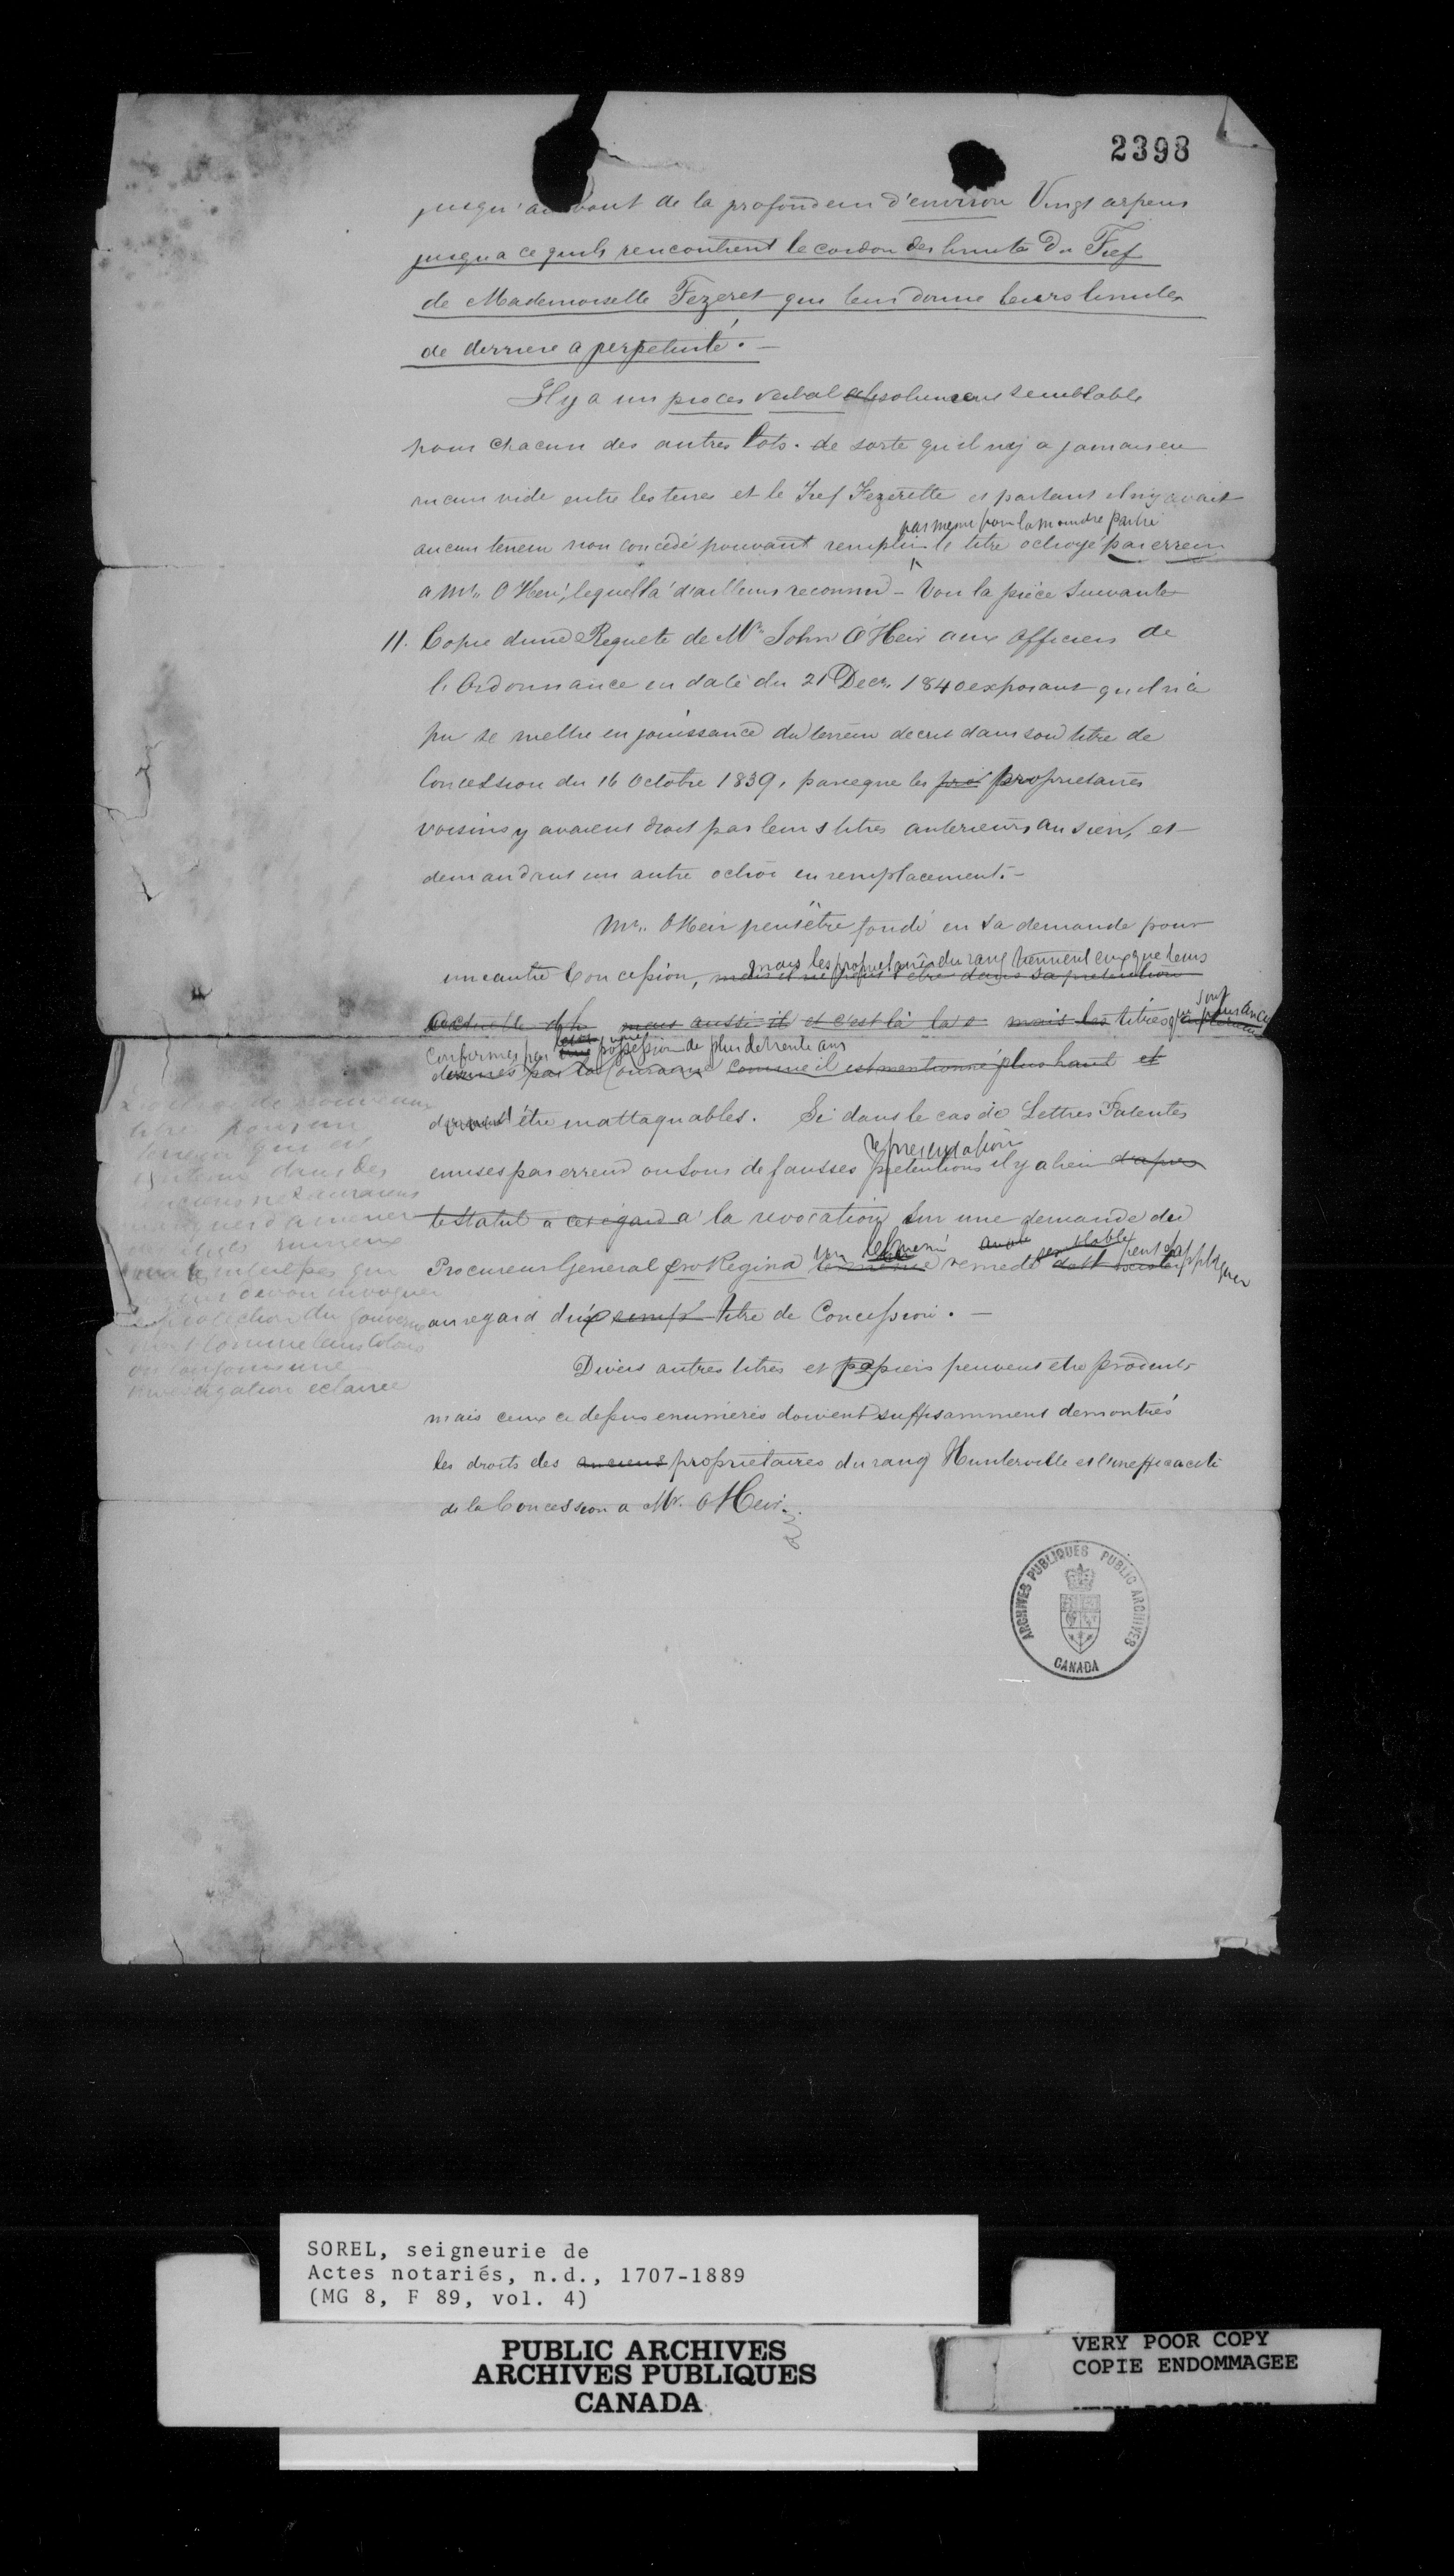 2398
jusqu'au bout de la profondeur d'environ Vingt arpens
jusqu'a ce quils rencontrent le cordon des limites Du Fief
de Mademoiselle Fezeret qui leur donne leurs limites
de derriere a perpetuité. —
Il y a un proces verbal absolument semblable
pour chacun des autres lots. de sorte qu'il n'y a jamais eu
aucun vide entre les terres et le Fief Fezerette et partant il n'y avait
pas meme pour la moindre partie
aucun terrein non concédé pouvant remplir le titre octroyé par erreur
a Mr. O'Heir, lequel l'a d'ailleurs reconnu — Voir la pièce Suivante
11. Copie d'une Requete de Mr. John O'Heir aux Officiers de
l'Ordonnance en date du 21 Decr. 1840 exposant qu'il n'a
pu se mettre en jouissance du terrein decrit dans son titre de
Concession du 16 Octobre 1839, parceque les pro proprietaires
voisins y avaient droit par leurs titres anterieurs au sien, et
demandant un autre octroi en remplacement. —
Mr. O'Heir peut être fondé en sa demande pour
mais les proprietaires du rang tiennent à ce que leurs
une autre Concession,
mais aussi il et c'est là la mais les titres qui sont
Confirmés par une possession de plus de trente ans
donnés par la Couronne comme il est mentionné plus haut et
être inattaquables. Si dans le cas de Lettres Patentes
representation
emises par erreur ou sous de fausses pretentions il y a lieu d'apres
le statut a cet égard a la revocation sur une demande du
Procureur General pro Regina remede semblable peut s'appliquer
au regard du titre de Concession. —
Divers autres titres et papiers peuvent etre produits
mais ceux ci dessus enumerés doivent suffisamment demontrés
les droits des anciens proprietaires du rang Hunterville et l'inefficacité
de la Concession a Mr. O'Heir.
nouveau
titre pour un
terrein qui est
dans des
d'amener
ruineux
protection du Gouverne
ment comme
investigation eclairée
ARCHIVES PUBLIQUES PUBLIC ARCHIVES
CANADA
SOREL, seigneurie de
Actes notariés, n.d., 1707-1889
(MG 8, F 89, vol. 4)
PUBLIC ARCHIVES
ARCHIVES PUBLIQUES
CANADA
VERY POOR COPY
COPIE ENDOMMAGEE
VERY POOR COPY